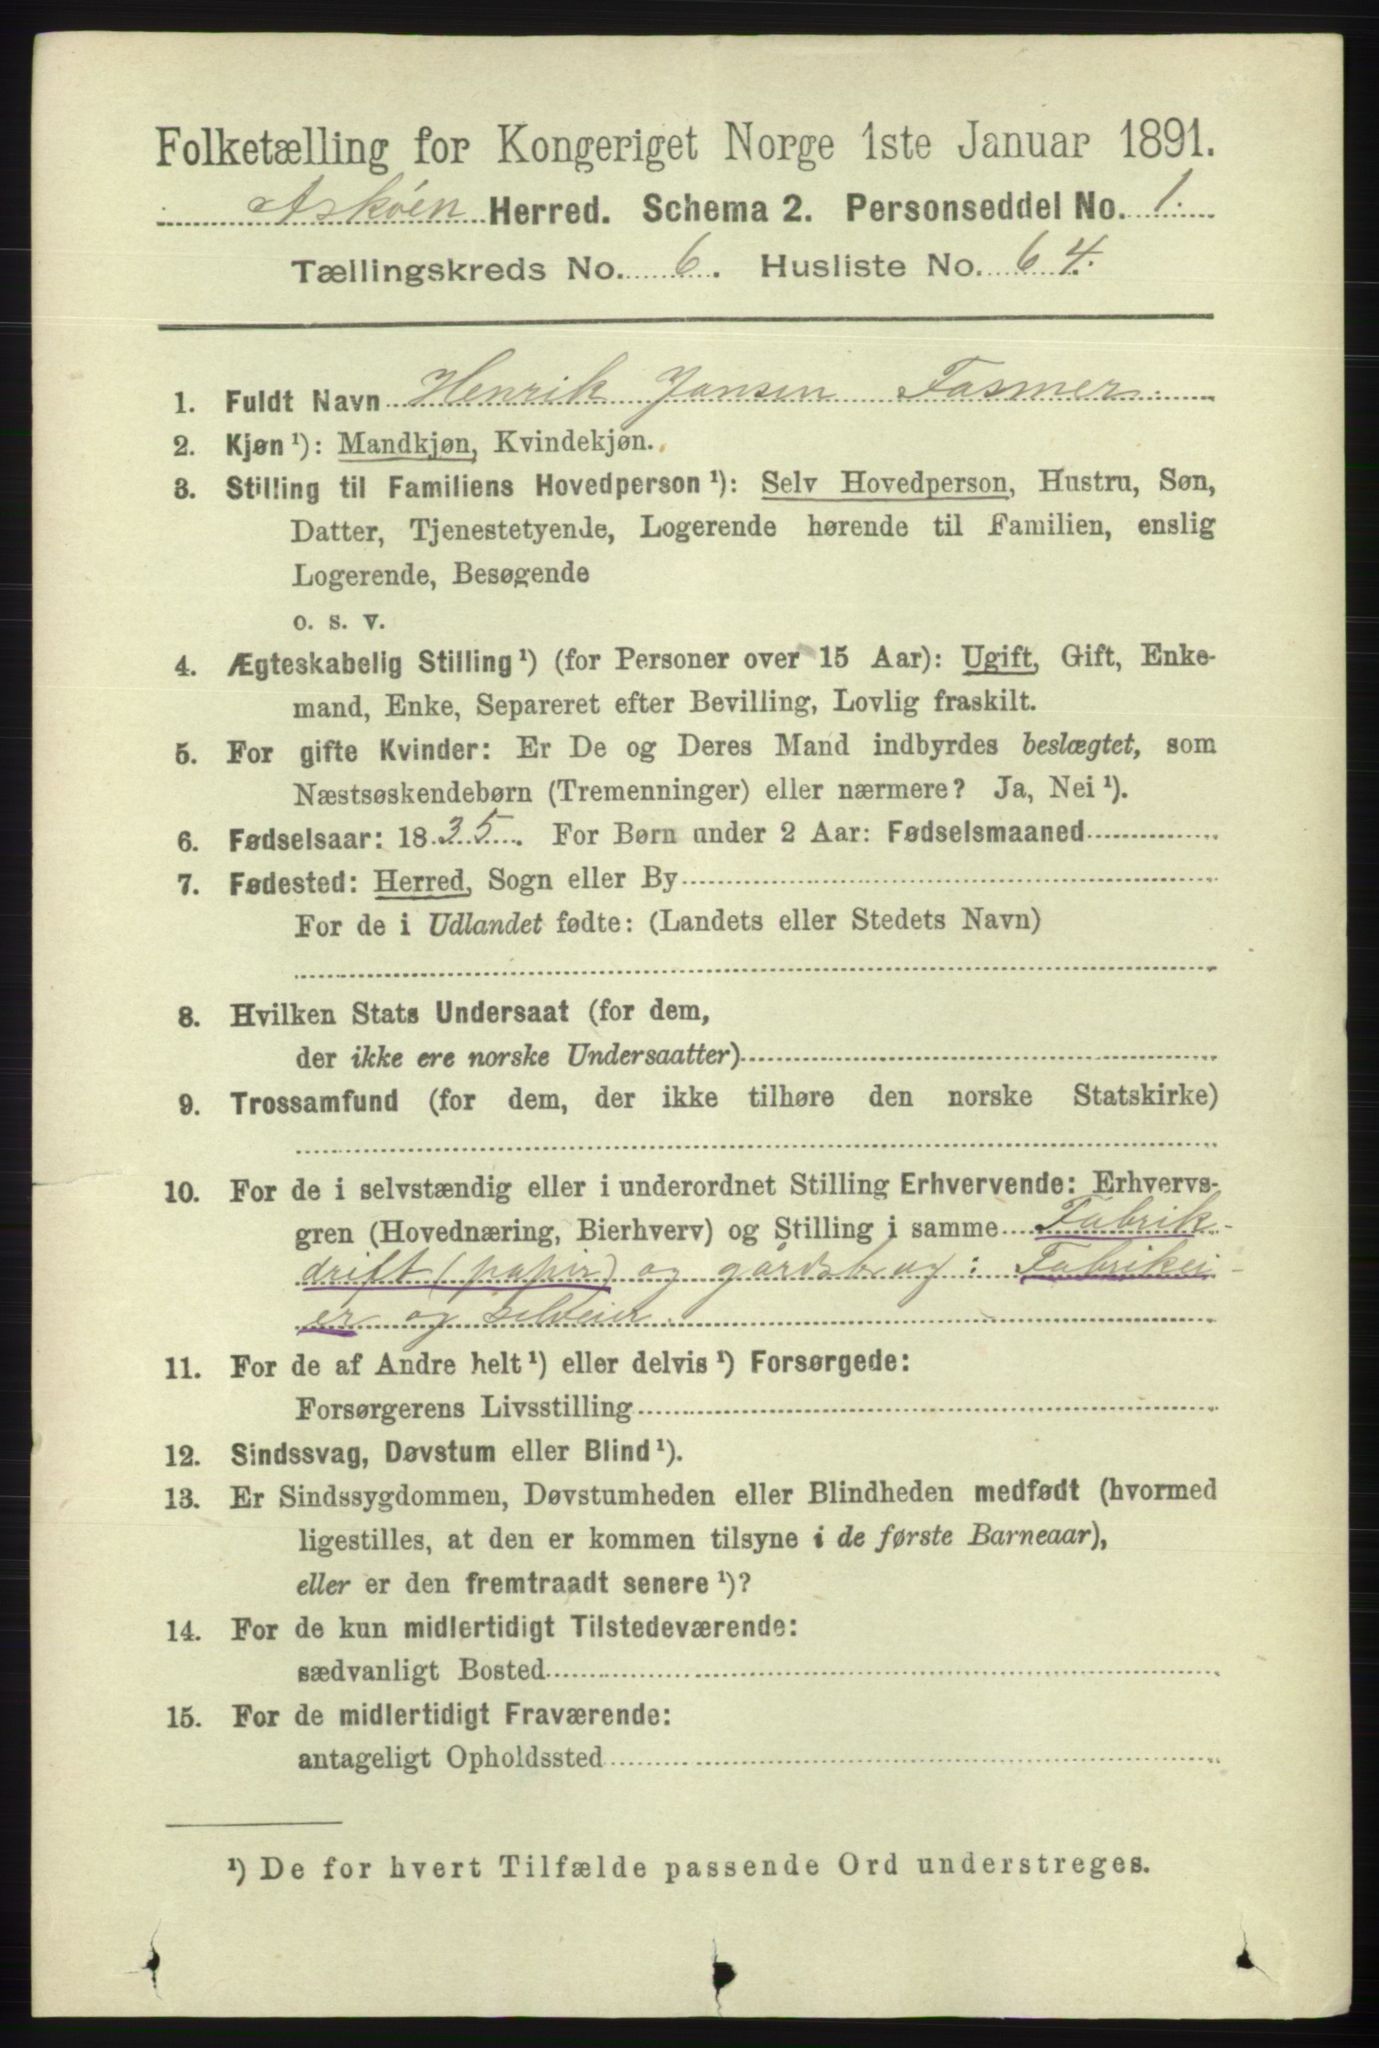 Folketælling for Kongeriget Norge 1ste Januar 1891.
Askøen Herred. Schema 2. Personseddel No. 1.
Tællingskreds No. 6. Husliste No. 64.
1. Fuldt Navn Henrik Jansen Fasmer.
2. Kjøn ¹): Mandkjøn, Kvindekjøn.
3. Stilling til Familiens Hovedperson ¹): Selv Hovedperson, Hustru, Søn,
Datter, Tjenestetyende, Logerende hørende til Familien, enslig
Logerende, Besøgende
o. s. v.
4. Ægteskabelig Stilling ¹) (for Personer over 15 Aar): Ugift, Gift, Enke-
mand, Enke, Separeret efter Bevilling, Lovlig fraskilt.
5. For gifte Kvinder: Er De og Deres Mand indbyrdes beslægtet, som
Næstsøskendebørn (Tremenninger) eller nærmere? Ja, Nei ¹).
6. Fødselsaar: 1835. For Børn under 2 Aar: Fødselsmaaned
7. Fødested: Herred, Sogn eller By
For de i Udlandet fødte: (Landets eller Stedets Navn)
8. Hvilken Stats Undersaat (for dem,
der ikke ere norske Undersaatter)
9. Trossamfund (for dem, der ikke tilhøre den norske Statskirke)
10. For de i selvstændig eller i underordnet Stilling Erhvervende: Erhvervs-
gren (Hovednæring, Bierhverv) og Stilling i samme Fabrik-
drift (papir) og gårdsbrug: Fabrikei-
er og selveier.
11. For de af Andre helt ¹) eller delvis ¹) Forsørgede:
Forsørgerens Livsstilling
12. Sindssvag, Døvstum eller Blind ¹).
13. Er Sindssygdommen, Døvstumheden eller Blindheden medfødt (hvormed
ligestilles, at den er kommen tilsyne i de første Barneaar),
eller er den fremtraadt senere ¹)?
14. For de kun midlertidigt Tilstedeværende:
sædvanligt Bosted
15. For de midlertidigt Fraværende:
antageligt Opholdssted
¹) De for hvert Tilfælde passende Ord understreges.